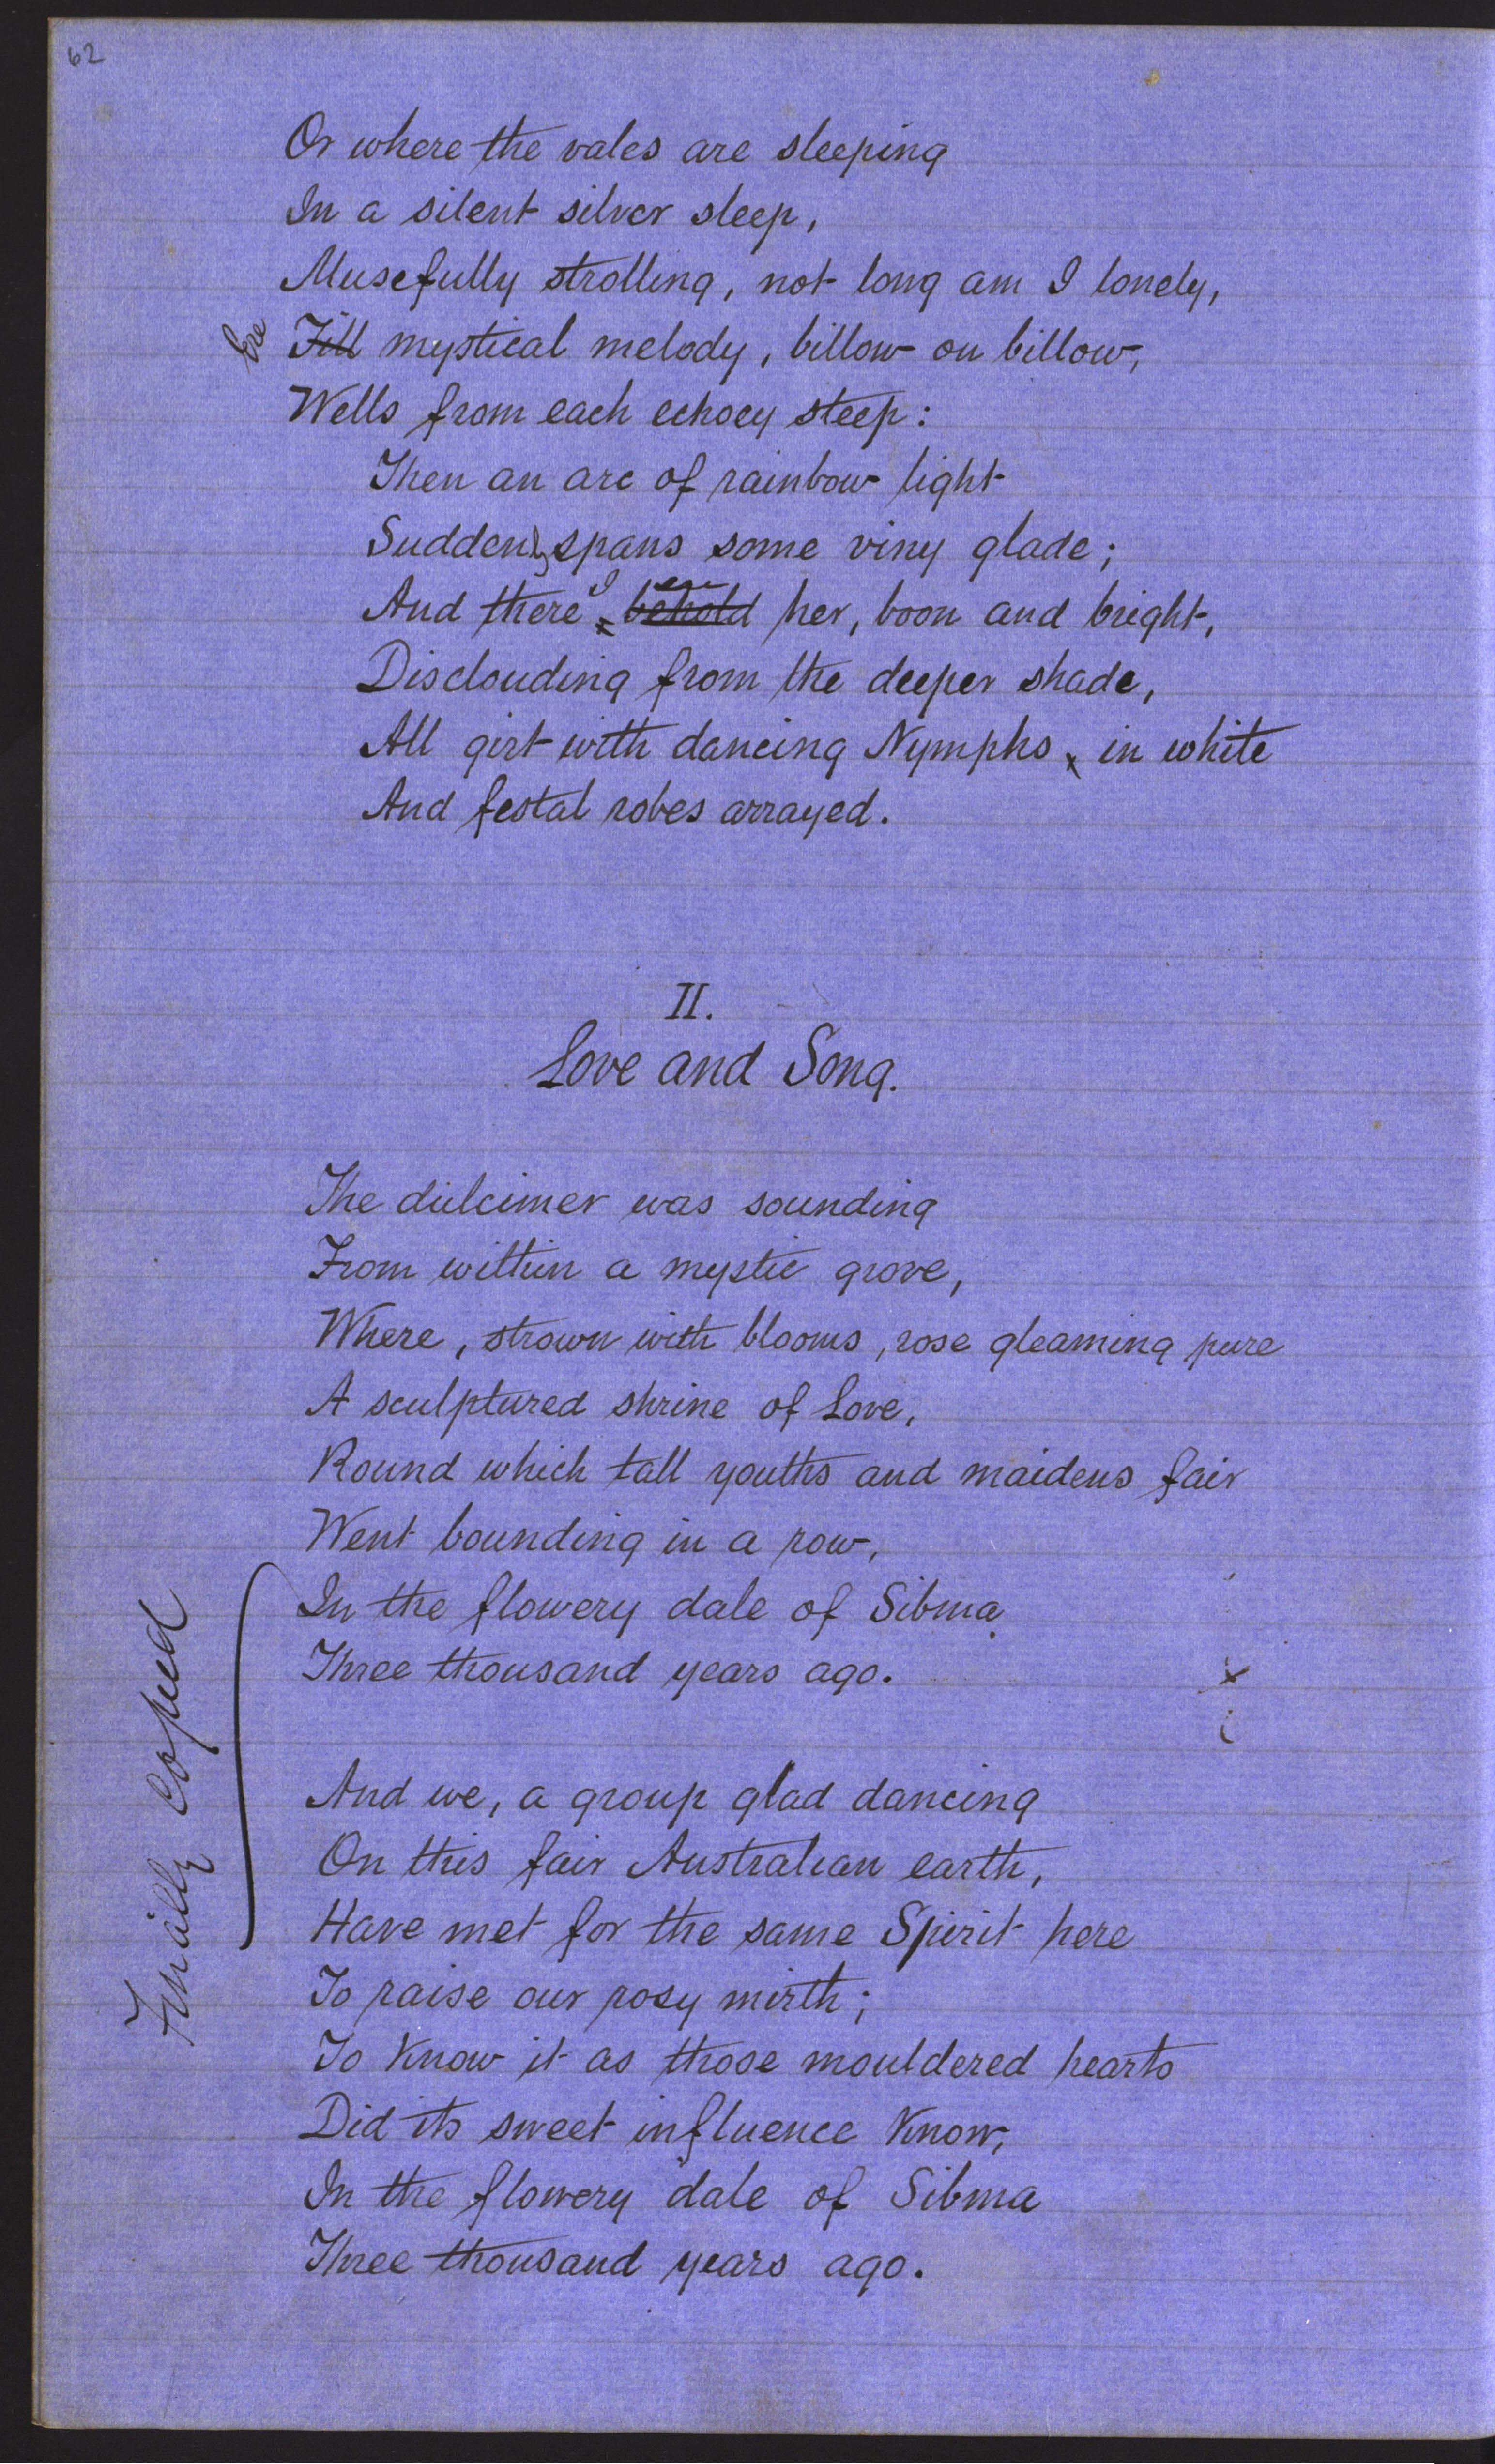 62
Or where the vales are sleeping
In a silent silver sleep,
Musefully strolling, not long am I lonely,
Ere Till mystical melody, billow on billow,
Wells from each echoey steep:
Then an arc of rainbow light
Suddenly spans some viny glade;
And there I behold her, boon and bright,
Disclouding from the deeper shade,
All girt with dancing Nymphs, in white
And festal robes arrayed.
II.
Love and Song.
The dulcimer was sounding
From within a mystic grove,
Where, strown with blooms, rose gleaming pure
A sculptured shrine of Love,
Round which tall youths and maidens fair
Went bounding in a row,
In the flowery dale of Sibma
Three thousand years ago.
And we, a group glad dancing
On this fair Australian earth,
Have met for the same Spirit here
To raise our rosy mirth;
To know it as those mouldered hearts
Did its sweet influence know,
In the flowery dale of Sibma
Three thousand years ago.
Finally Copied